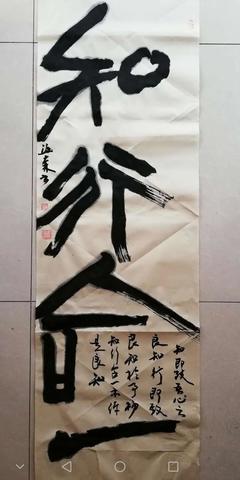 知行合一
知即致吾心之
良知行即致
良知於事物
知行合一亦作
良知